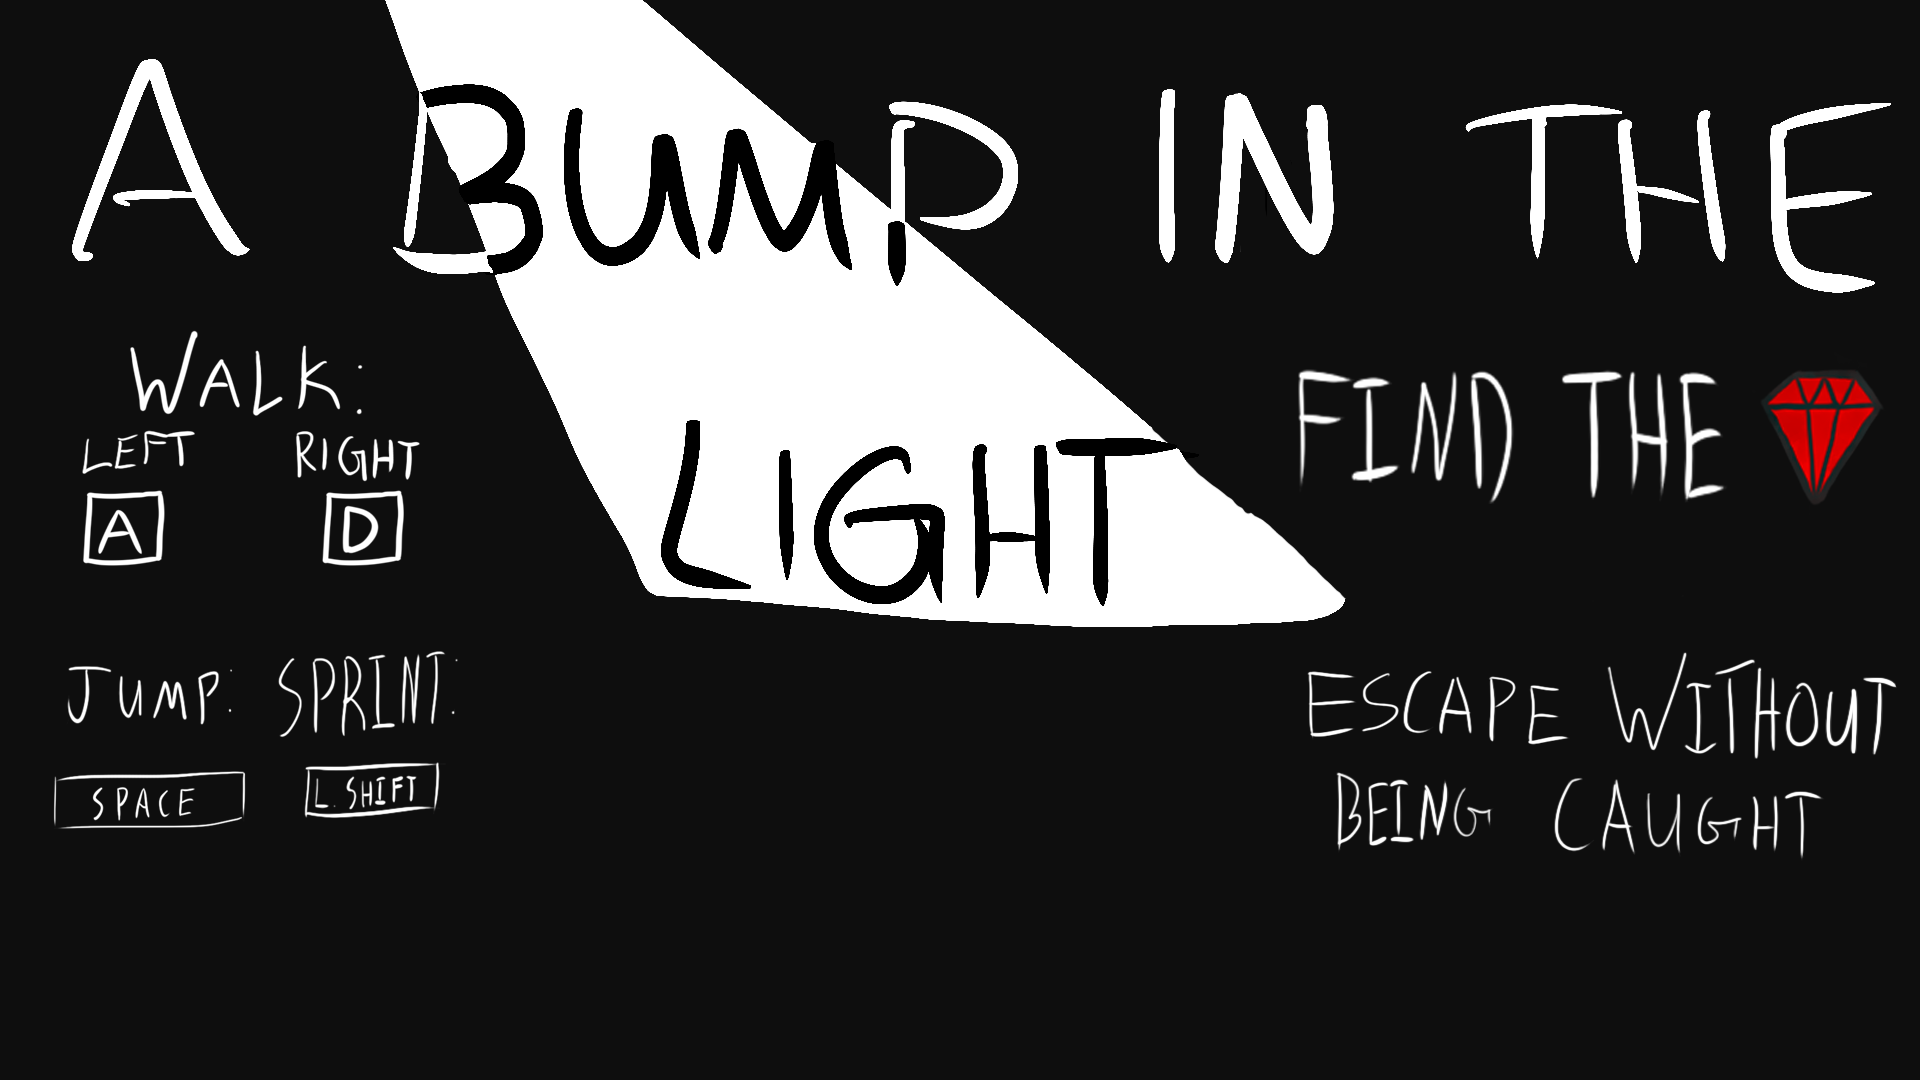 A BUMP IN THE
LIGHT
WALK:
LEFT RIGHT
A D
JUMP: SPRINT:
SPACE L. SHIFT
FIND THE
ESCAPE WITHOUT
BEING CAUGHT